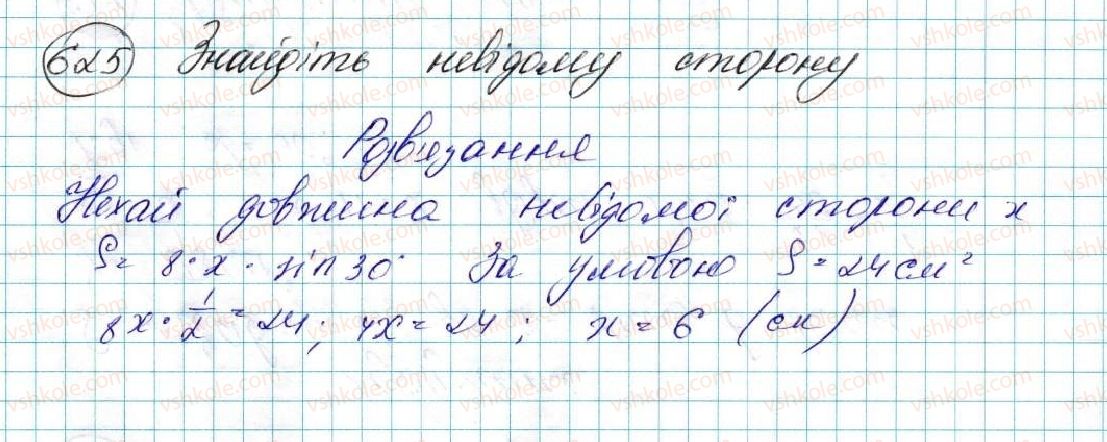 625 Знайдіть невідому сторону
Розв'язання
Нехай довжина невідомої сторони x
S = 8·x·sin30° За умовою S = 24 см²
8x·1/2 = 24; 4x = 24; x = 6 (см)